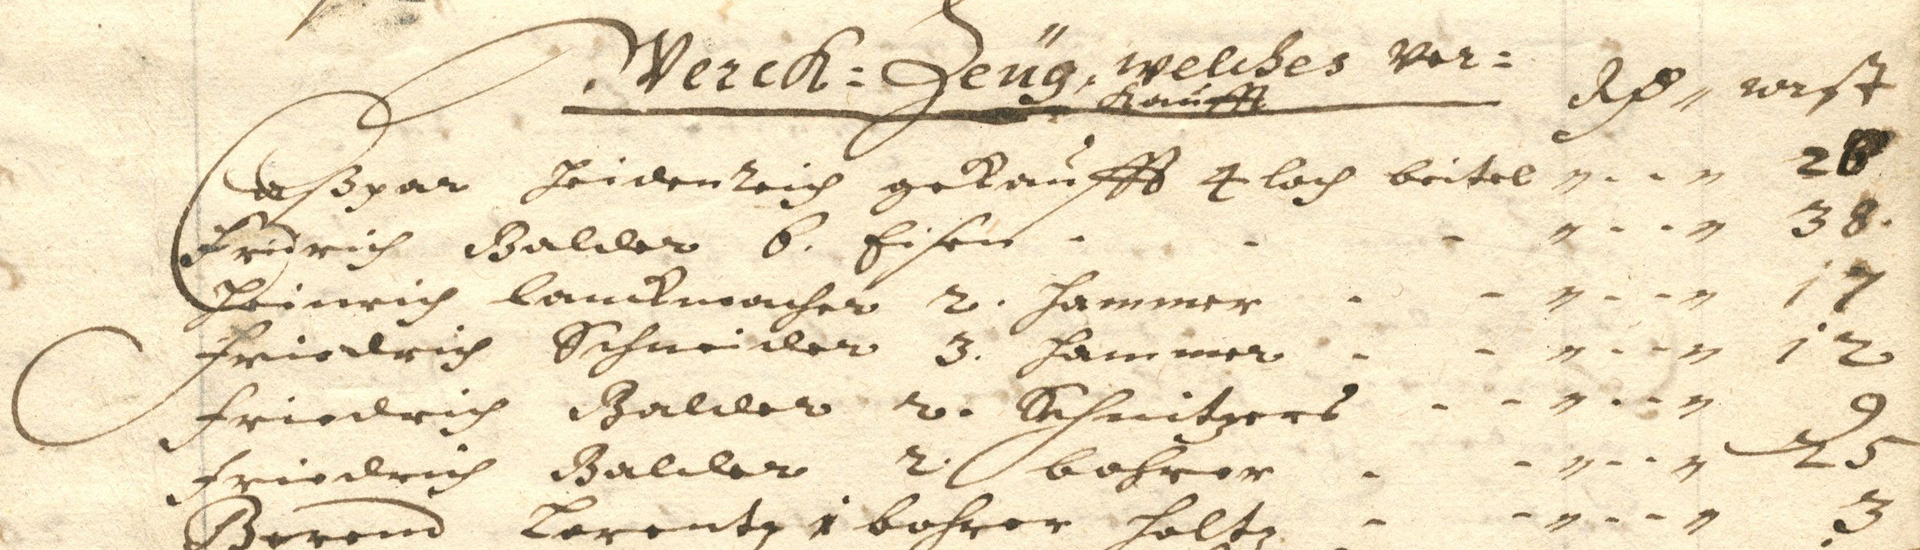 Werck=Zeüg, welches ver=
kaufft
Caßpar Heidenreich gekaufft 4 loch beitel " - - " 28
Fridrich Balder 6. Eisen - - - " - - " 38.
Heinrich lanckmacher 2. hammer - - " - - " 17
Friedrich Schneider 3. hammer - - " - - " 12
Friedrich Balder 2. Schnitzers - - " - - " 9
Friedrich Balder 2. bohrer - - " - - " 25
Berend Lorentz 1 bohrer holtz - - " - - " 3